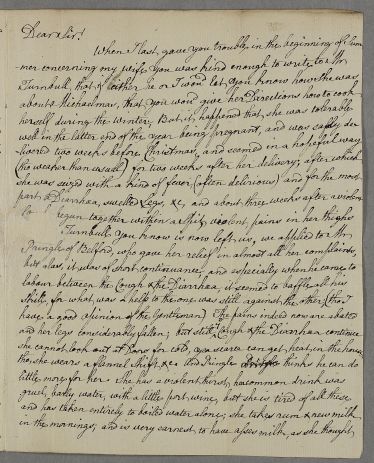 Dear Sir!
When I last gave you trouble, in the beginning of Sum
mer concerning my wife, you was kind enough to write to Mr
Turnbull, that if either he or I wou'd let you know how she was
about Michaelmas, that you wou'd give her Directions how to cook
herself during the Winter, But it happened, that she was tolerable
well in the latter end of the year being pregnant, and was safely de-
livered two weeks before Christmas, and seemed in a hopeful way
(no weaker than usual) for two weeks after her delivery, after which
she was seized with a kind of fever (often delirious) and for the most
part a Diarrhœa, swelled Legs, &c, and about three weeks after a violent
began together with a stif, violent pains in her thighs
Turnbull You know is now left us, we applied to Mr
Pringle of Belford, who gave her relief in almost all her complaints,
but alas, it was of short continuance, and especially when he came to
labour between the Cough & the Diarrhœa, it seemed to baffle all his
skill, for what was a help to the one was still against the other (tho' I
have a good opinion of the Gentleman) The pains indeed now are abated
and her legs considerably fallen; but still Cough & the Diarrhœa continue
she cannot look out at Door for cold, and scarce can get heat in the house,
tho' she wears a flannel Shift, &c. And Pringle thinks he can do
little more for her. She has a violent thirst, her common drink was
gruel, barley water, with a little port wine, but she is tired of all these
and has taken entirely to boiled water alone; she takes rum & new milk
in the mornings, and is very earnest to have asses milk, as she thought